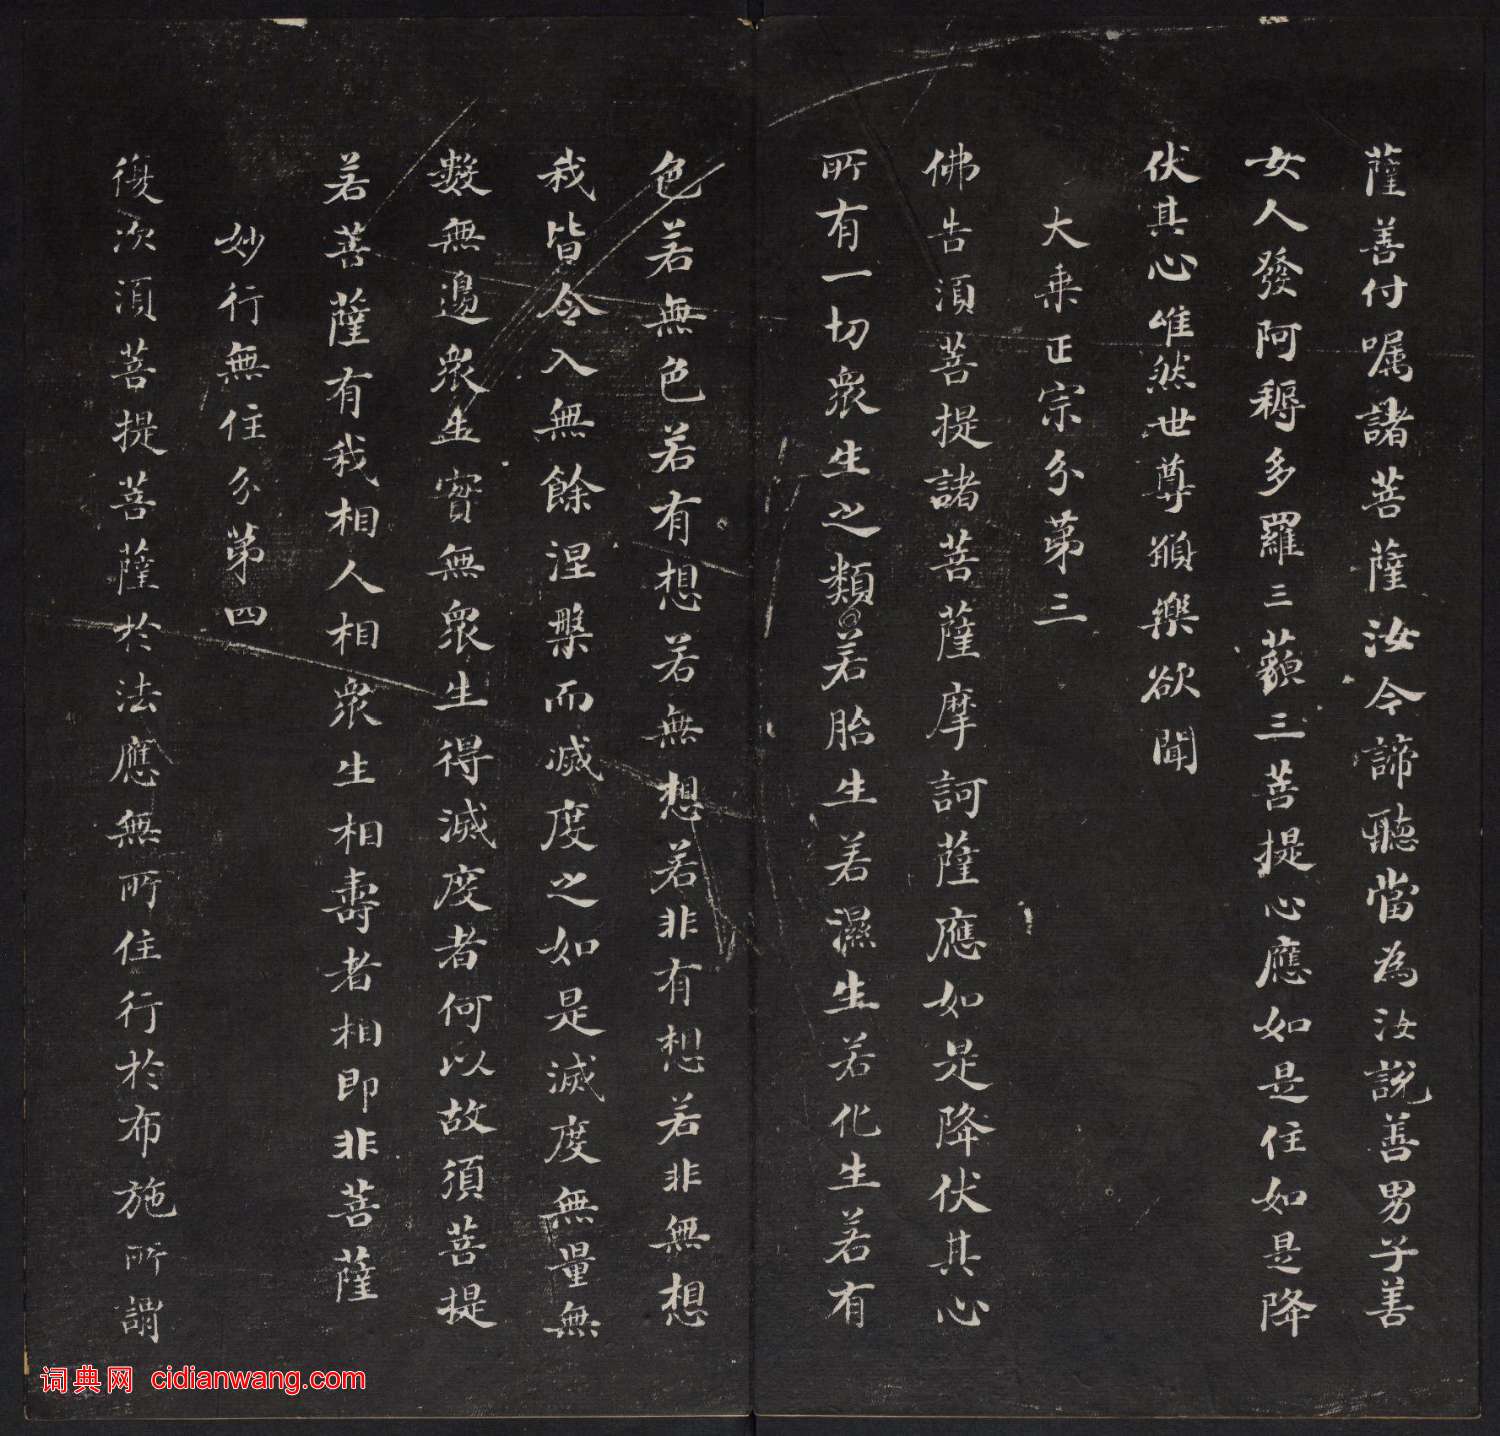 薩善付囑諸菩薩汝今諦聽當為汝說善男子善
女人發阿耨多羅三藐三菩提心應如是住如是降
伏其心唯然世尊願樂欲聞
大乘正宗分第三
佛告須菩提諸菩薩摩訶薩應如是降伏其心
所有一切眾生之類若胎生若濕生若化生若有
色若無色若有想若無想若非有想若非無想
我皆令入無餘涅槃而滅度之如是滅度無量無
數無邊眾生實無眾生得滅度者何以故須菩提
若菩薩有我相人相眾生相壽者相即非菩薩
妙行無住分第四
復次須菩提菩薩於法應無所住行於布施所謂
词典网 cidianwang.com